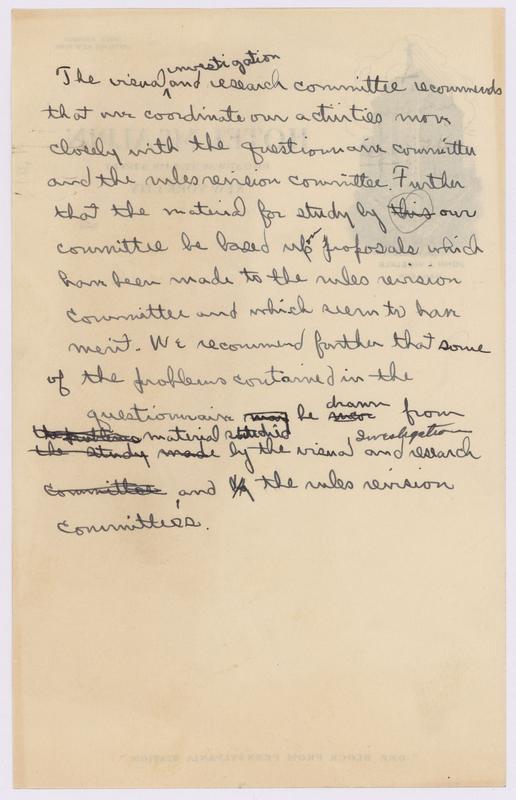 The visual investigation and research committee recommends
that we coordinate our activities more
closely with the questionnaire committee
and the rules revision committee. Further
that the material for study by this our
committee be based upon proposals which
have been made to the rules revision
committee and which seem to have
merit. We recommend further that some
of the problems contained in the
questionnaire may be drawn from
the problems material studied investigation
the study made by the visual and research
committee and the rules revision
committees.
"ONE BLOCK FROM PENNSYLVANIA STATION"